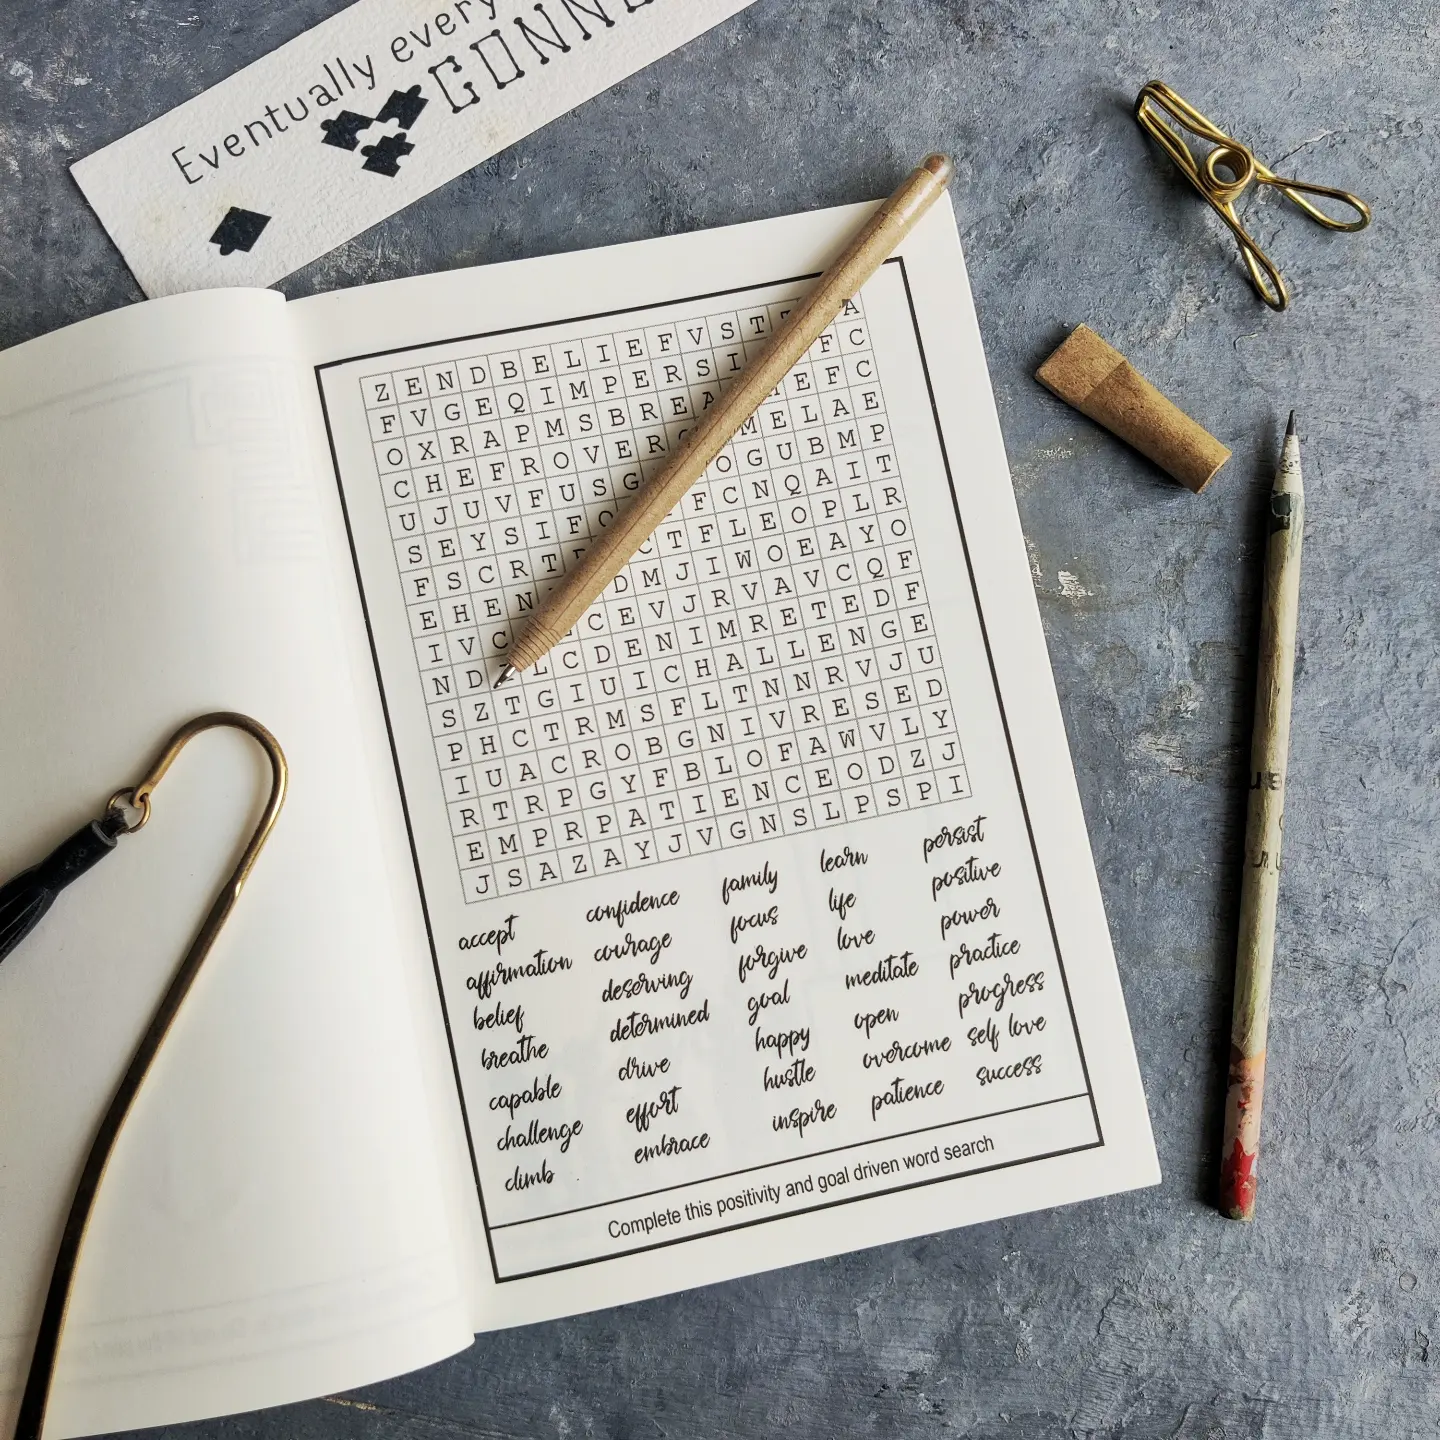 Eventually every
CONNE
Z E N D B E L I E F V S T A
F V G E Q I M P E R S I F C
O X R A P M S B R E A H E F C
C H E F R O V E R M E L A E
U J U V F U S G O G U B M P
S E Y S I F F C N Q A I T
F S C R T C T F L E O P L R
E H E N D M J I W O E A Y O
I V C C E V J R V A V C Q F
N D L C D E N I M R E T E D F
S Z T G I U I C H A L L E N G E
P H C T R M S F L T N N R V J U
I U A C R O B G N I V R E S E D
R T R P G Y F B L O F A W V L Y
E M P R P A T I E N C E O D Z J
J S A Z A Y J V G N S L P S P I
accept confidence family learn persist
affirmation courage focus life positive
belief deserving forgive love power
breathe determined goal meditate practice
capable drive happy open progress
challenge effort hustle overcome self love
climb embrace inspire patience success
Complete this positivity and goal driven word search